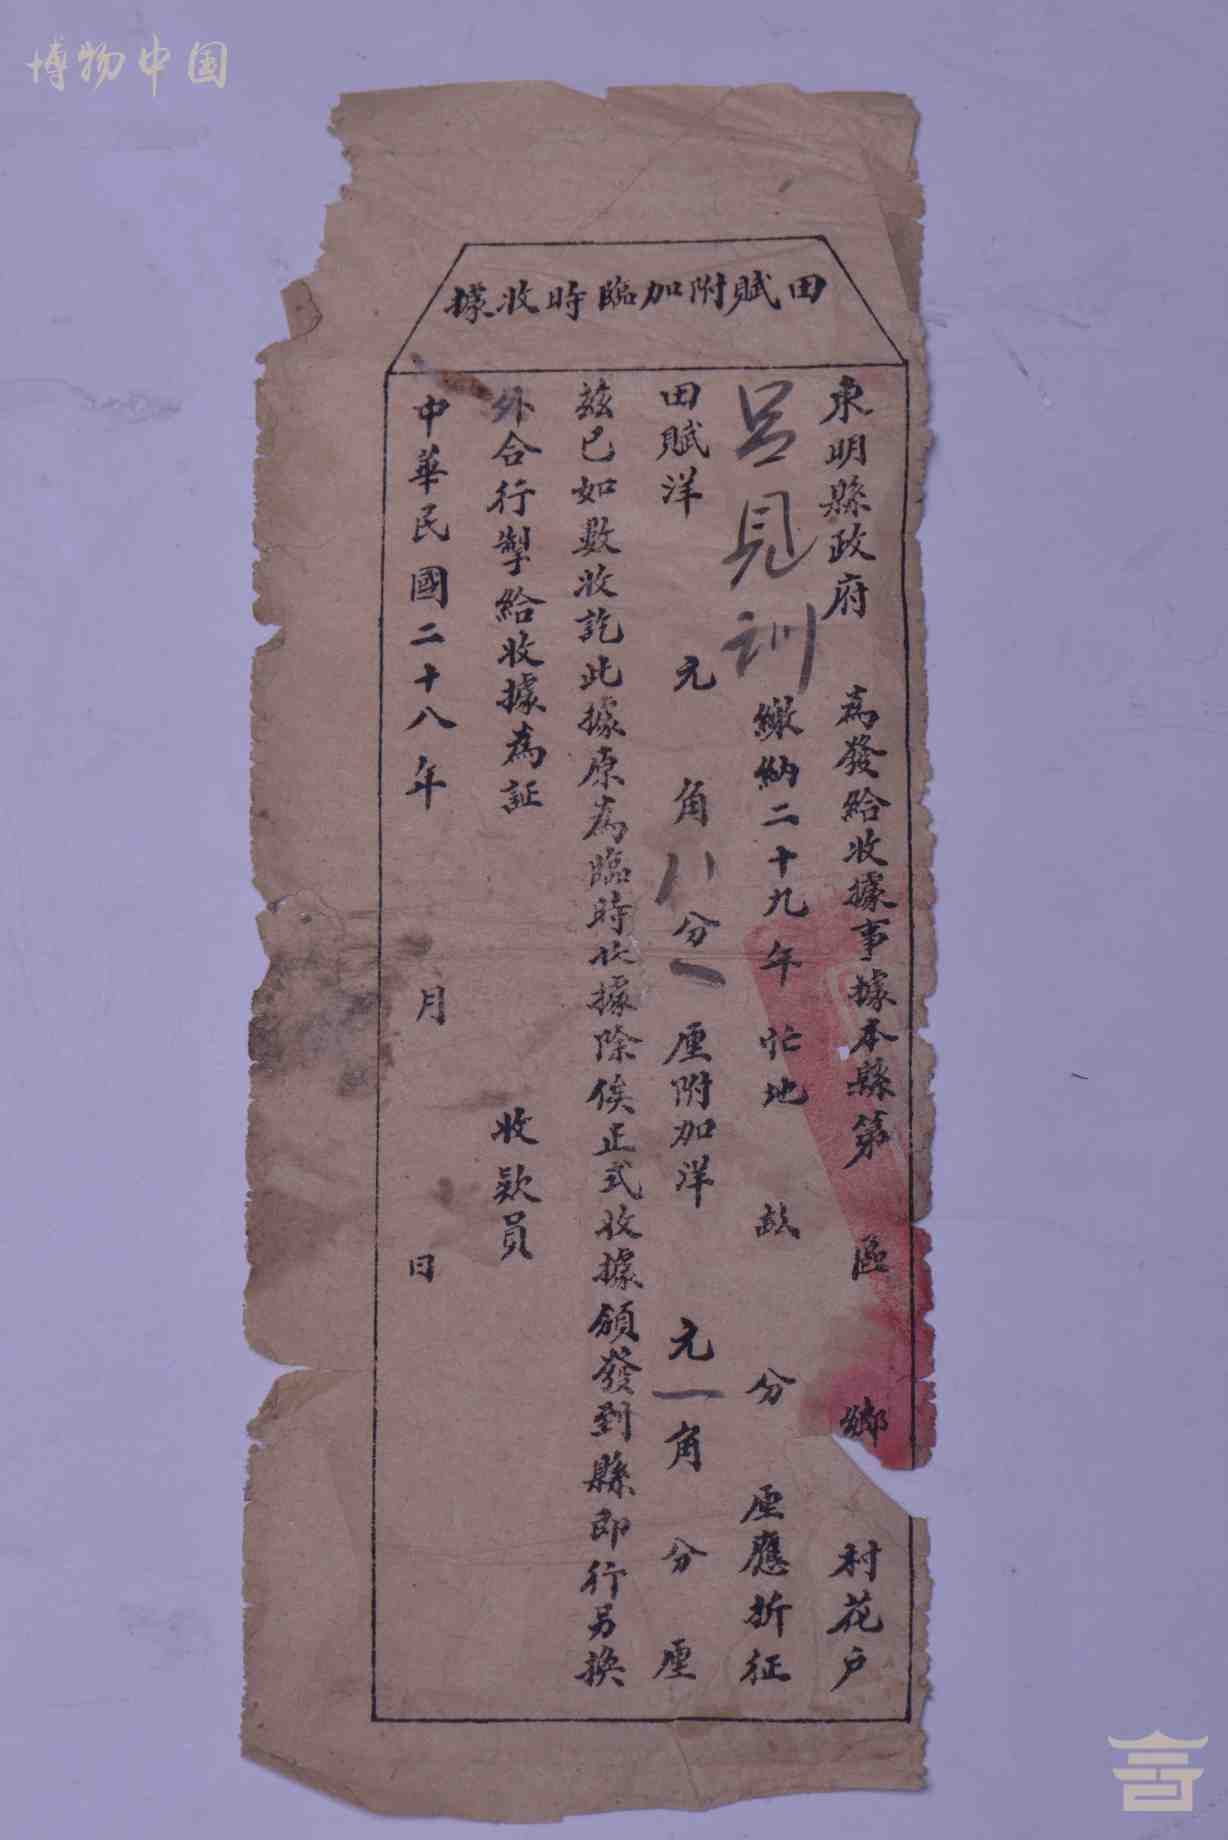 博物中国
田賦附加臨時收據
東明縣政府 為發給收據事據本縣第 區 鄉 村花戶
呂見訓 繳納二十九年 忙地 畝 分 厘應折征
田賦洋 元 角八分一厘附加洋 元一角 分 厘
茲已如數收訖此據原為臨時收據除俟正式收據頒發到縣即行另換
外合行掣給收據為証 收款員
中華民國二十八年 月 日